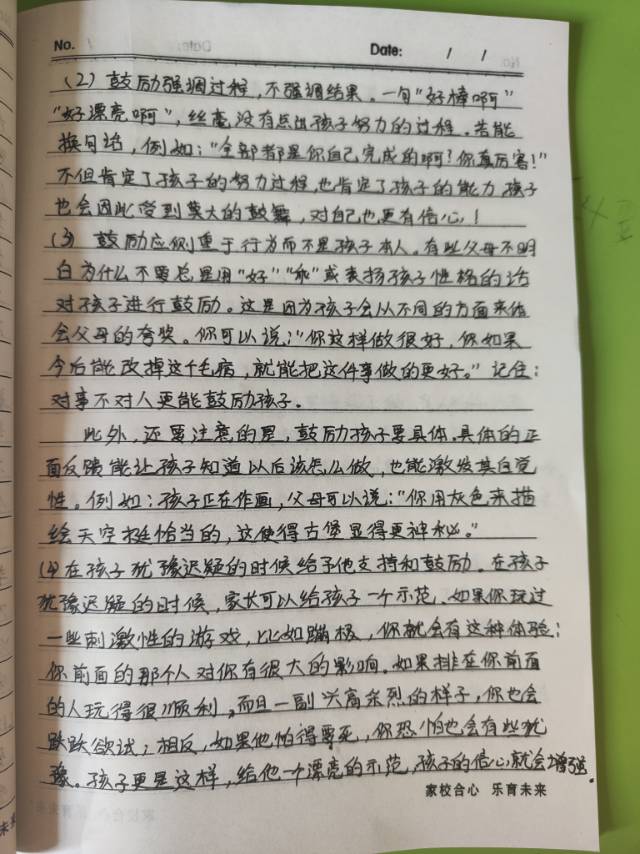 No.
Date: / /
(2) 鼓励强调过程，不强调结果。一句"好棒啊"
"好漂亮啊"，丝毫没有点出孩子努力的过程。若能
换句话，例如："全部都是你自己完成的啊？你真厉害！"
不但肯定了孩子的努力过程，也肯定了孩子的能力，孩子
也会因此受到莫大的鼓舞，对自己也更有信心！
(3) 鼓励应侧重于行为而不是孩子本人。有些父母不明
白为什么不要总是用"好""乖"或表扬孩子性格的话
对孩子进行鼓励。这是因为孩子会从不同的方面来体
会父母的夸奖。你可以说："你这样做很好，你如果
今后能改掉这个毛病，就能把这件事做的更好。"记住：
对事不对人更能鼓励孩子。
此外，还要注意的是，鼓励孩子要具体。具体的正
面反馈能让孩子知道以后该怎么做，也能激发其自觉
性。例如：孩子正在作画，父母可以说："你用灰色来描
绘天空挺恰当的，这使得古堡显得更神秘。"
(4) 在孩子犹豫迟疑的时候给予他支持和鼓励。在孩子
犹豫迟疑的时候，家长可以给孩子一个示范。如果你玩过
一些刺激性的游戏，比如蹦极，你就会有这种体验：
你前面的那个人对你有很大的影响。如果排在你前面
的人玩得很顺利，而且一副兴高采烈的样子，你也会
跃跃欲试；相反，如果他怕得要死，你恐怕也会有些犹
豫。孩子更是这样，给他一个漂亮的示范，孩子的信心就会增强。
家校合心 乐育未来